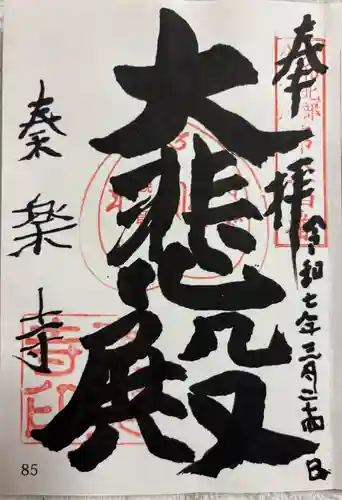 奉拝
令和七年三月二十四日
大悲殿
秦楽寺
85